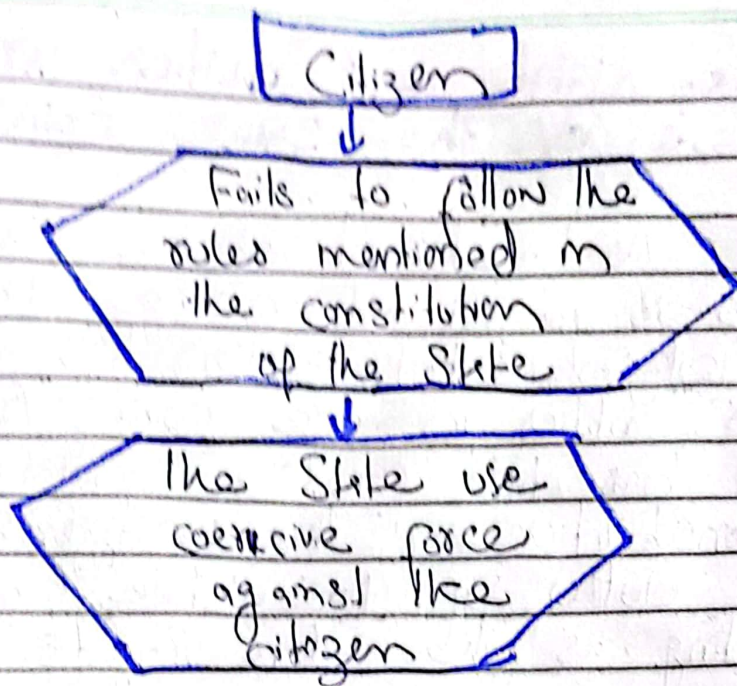 Citizen
Fails to follow the
rules mentioned in
the constitution
of the State
The State use
coercive force
against the
citizen